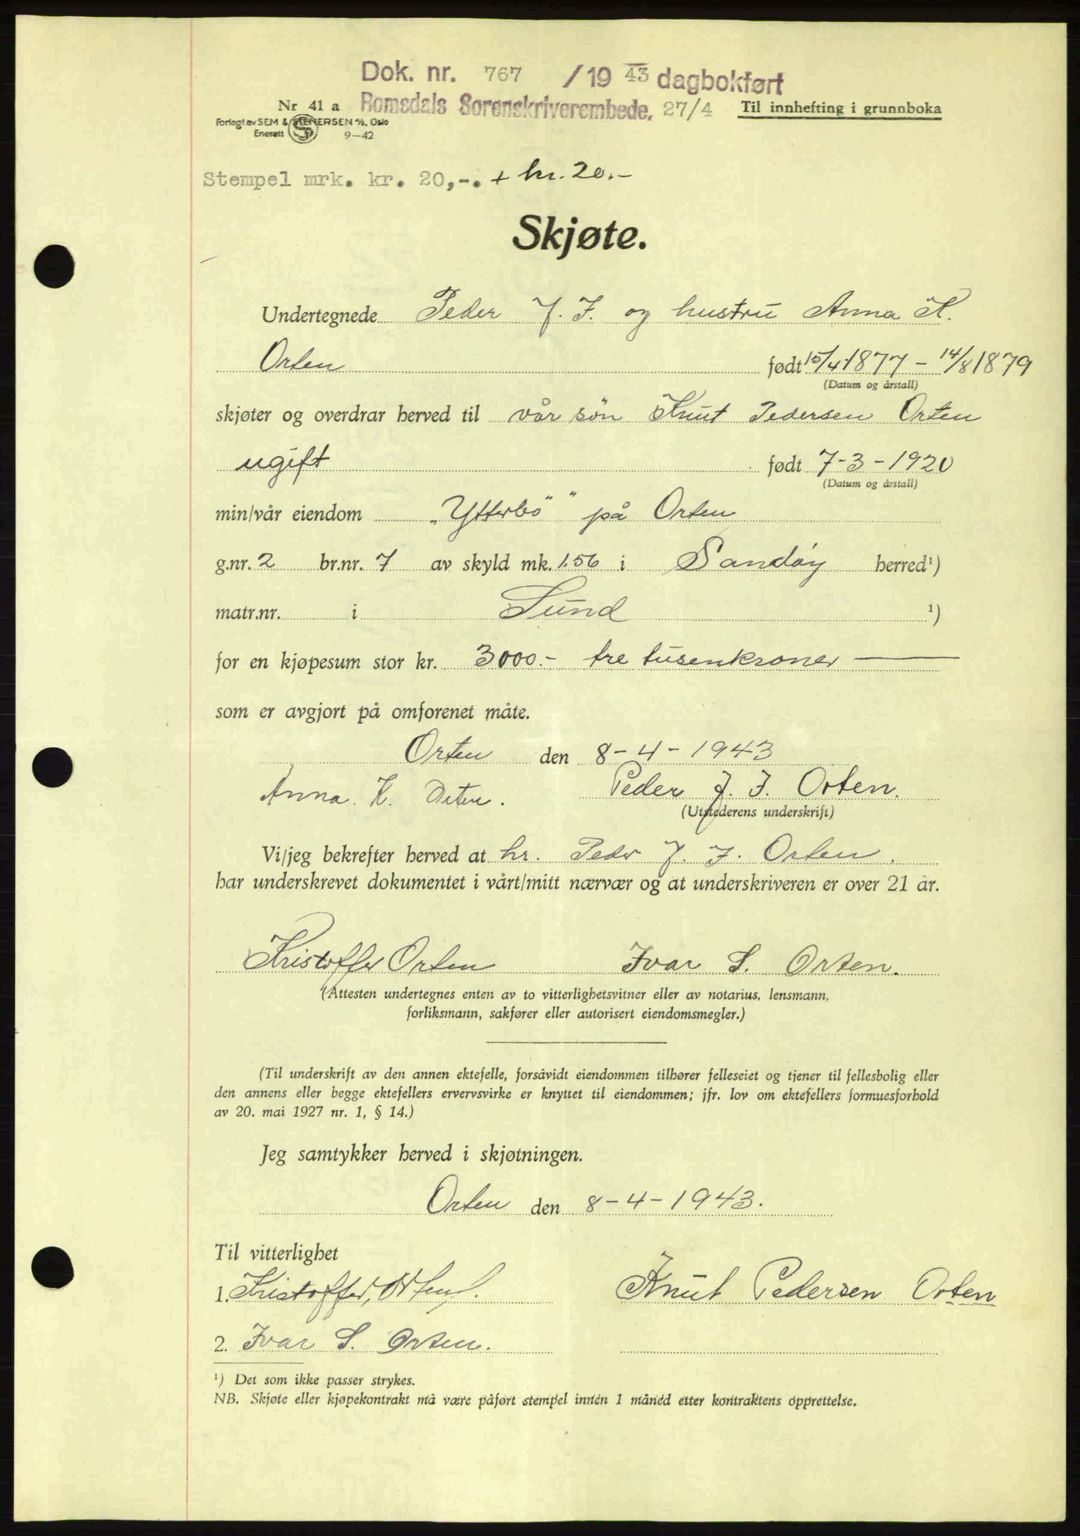 Dok. nr. 767 /19 43 dagbokført
Nr 41 a Romsdals Sorenskriverembede, 27/4 Til innhefting i grunnboka
Forlagt av SEM & STENERSEN A/S, Oslo
Enerett 9—42
Stempel mrk. kr. 20,-. + kr. 20.-
Skjøte.
Undertegnede Peder J. J. og hustru Anna K.
Orten født 15/4-1877 - 14/8 1879
(Datum og årstall)
skjøter og overdrar herved til vår søn Knut Pedersen Orten
ugift født 7-3-1920
(Datum og årstall)
min/vår eiendom "Ytterbö" på Orten
g.nr. 2 br.nr. 7 av skyld mk. 1.56 i Sandøy herred¹)
matr.nr. i Sund ¹)
for en kjøpesum stor kr. 3000.- tre tusenkroner
som er avgjort på omforenet måte.
Orten den 8-4-1943
Anna. K. Orten. Peder J. J. Orten.
(Utstederens underskrift)
Vi/jeg bekrefter herved at hr. Peder J. J. Orten.
har underskrevet dokumentet i vårt/mitt nærvær og at underskriveren er over 21 år.
Kristoffer Orten Ivar S. Orten.
(Attesten undertegnes enten av to vitterlighetsvitner eller av notarius, lensmann,
forliksmann, sakfører eller autorisert eiendomsmegler.)
(Til underskrift av den annen ektefelle, forsåvidt eiendommen tilhører felleseiet og tjener til fellesbolig eller
den annens eller begge ektefellers ervervsvirke er knyttet til eiendommen; jfr. lov om ektefellers formuesforhold
av 20. mai 1927 nr. 1, § 14.)
Jeg samtykker herved i skjøtningen.
Orten den 8-4-1943.
Til vitterlighet
1. Kristoffer Orten. Knut Pedersen Orten
2. Ivar S. Orten.
¹) Det som ikke passer strykes.
NB. Skjøte eller kjøpekontrakt må være påført stempel innen 1 måned etter kontraktens opprettelse.